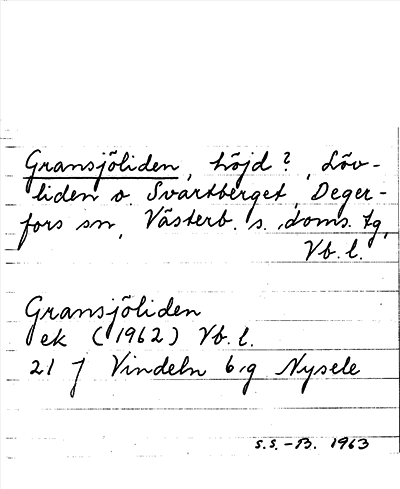 Gransjöliden, höjd?, Löv-
liden o. Svartberget, Deger-
fors sn, Västerb. s. doms. tg,
Vb. l.
Gransjöliden
ek (1962) Vb. l.
21 J Vindeln 6ig Nysele
S.S.-B. 1963